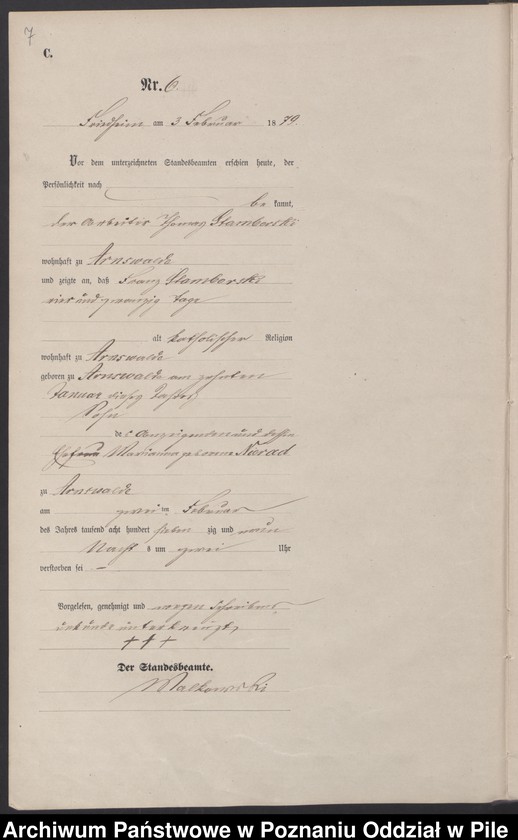 7
C.
Nr. 6.
Friedheim am 3 Februar 1879.
Vor dem unterzeichneten Standesbeamten erschien heute, der
Persönlichkeit nach
be kannt,
der Arbeiter Thomas Stamberski
wohnhaft zu Arnswalde
und zeigte an, daß Franz Stamberski
vier und zwanzig Tage
alt katholischer Religion
wohnhaft zu Arnswalde
geboren zu Arnswalde am zehnten
Januar dieses Jahres
Sohn
des Anzeigenden und dessen
Ehefrau Marianna geborene Narad
zu Arnswalde
am zwei ten Februar
des Jahres tausend acht hundert sieben zig und neun
Nacht s um zwei Uhr
verstorben sei —
Vorgelesen, genehmigt und wegen Schreibens
unkunde unterkreuzt,
+ + +
Der Standesbeamte.
Malkowski
Archiwum Państwowe w Poznaniu Oddział w Pile